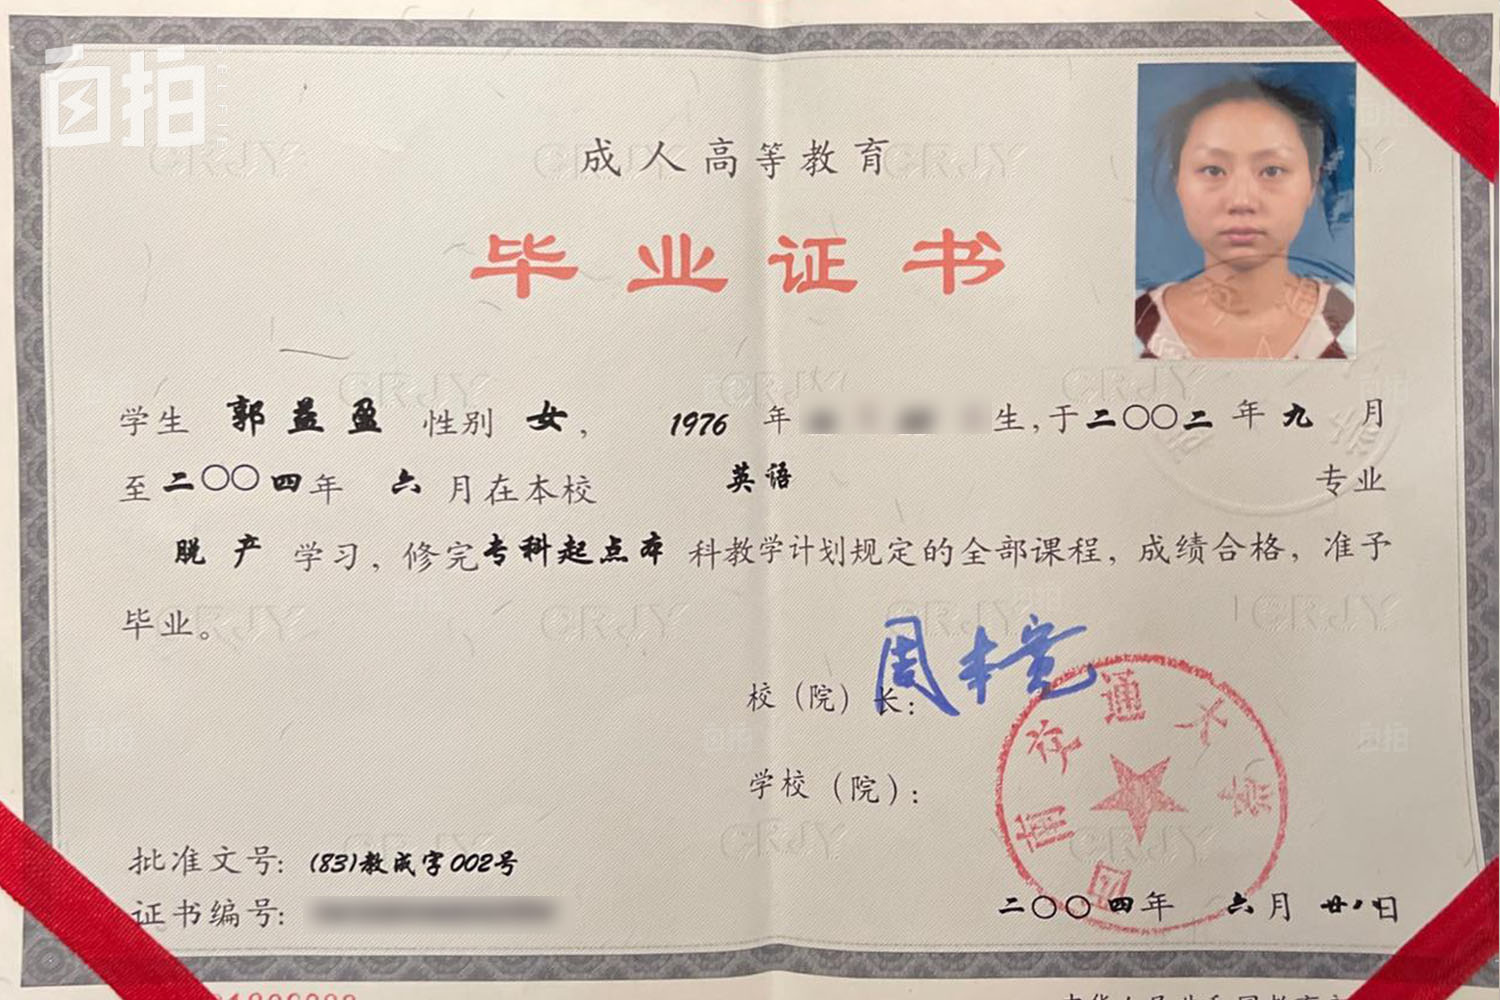 自拍
SELFIE
成人高等教育
毕业证书
学生 郭益盈 性别 女, 1976 年 生,于二〇〇二年九月
至二〇〇四年 六月在本校 英语 专业
脱产 学习, 修完专科起点本科教学计划规定的全部课程, 成绩合格, 准予
毕业。
校（院）长:
学校（院）:
西南交通大学
批准文号: (83)教成字002号
证书编号:
二〇〇四年 六月 日